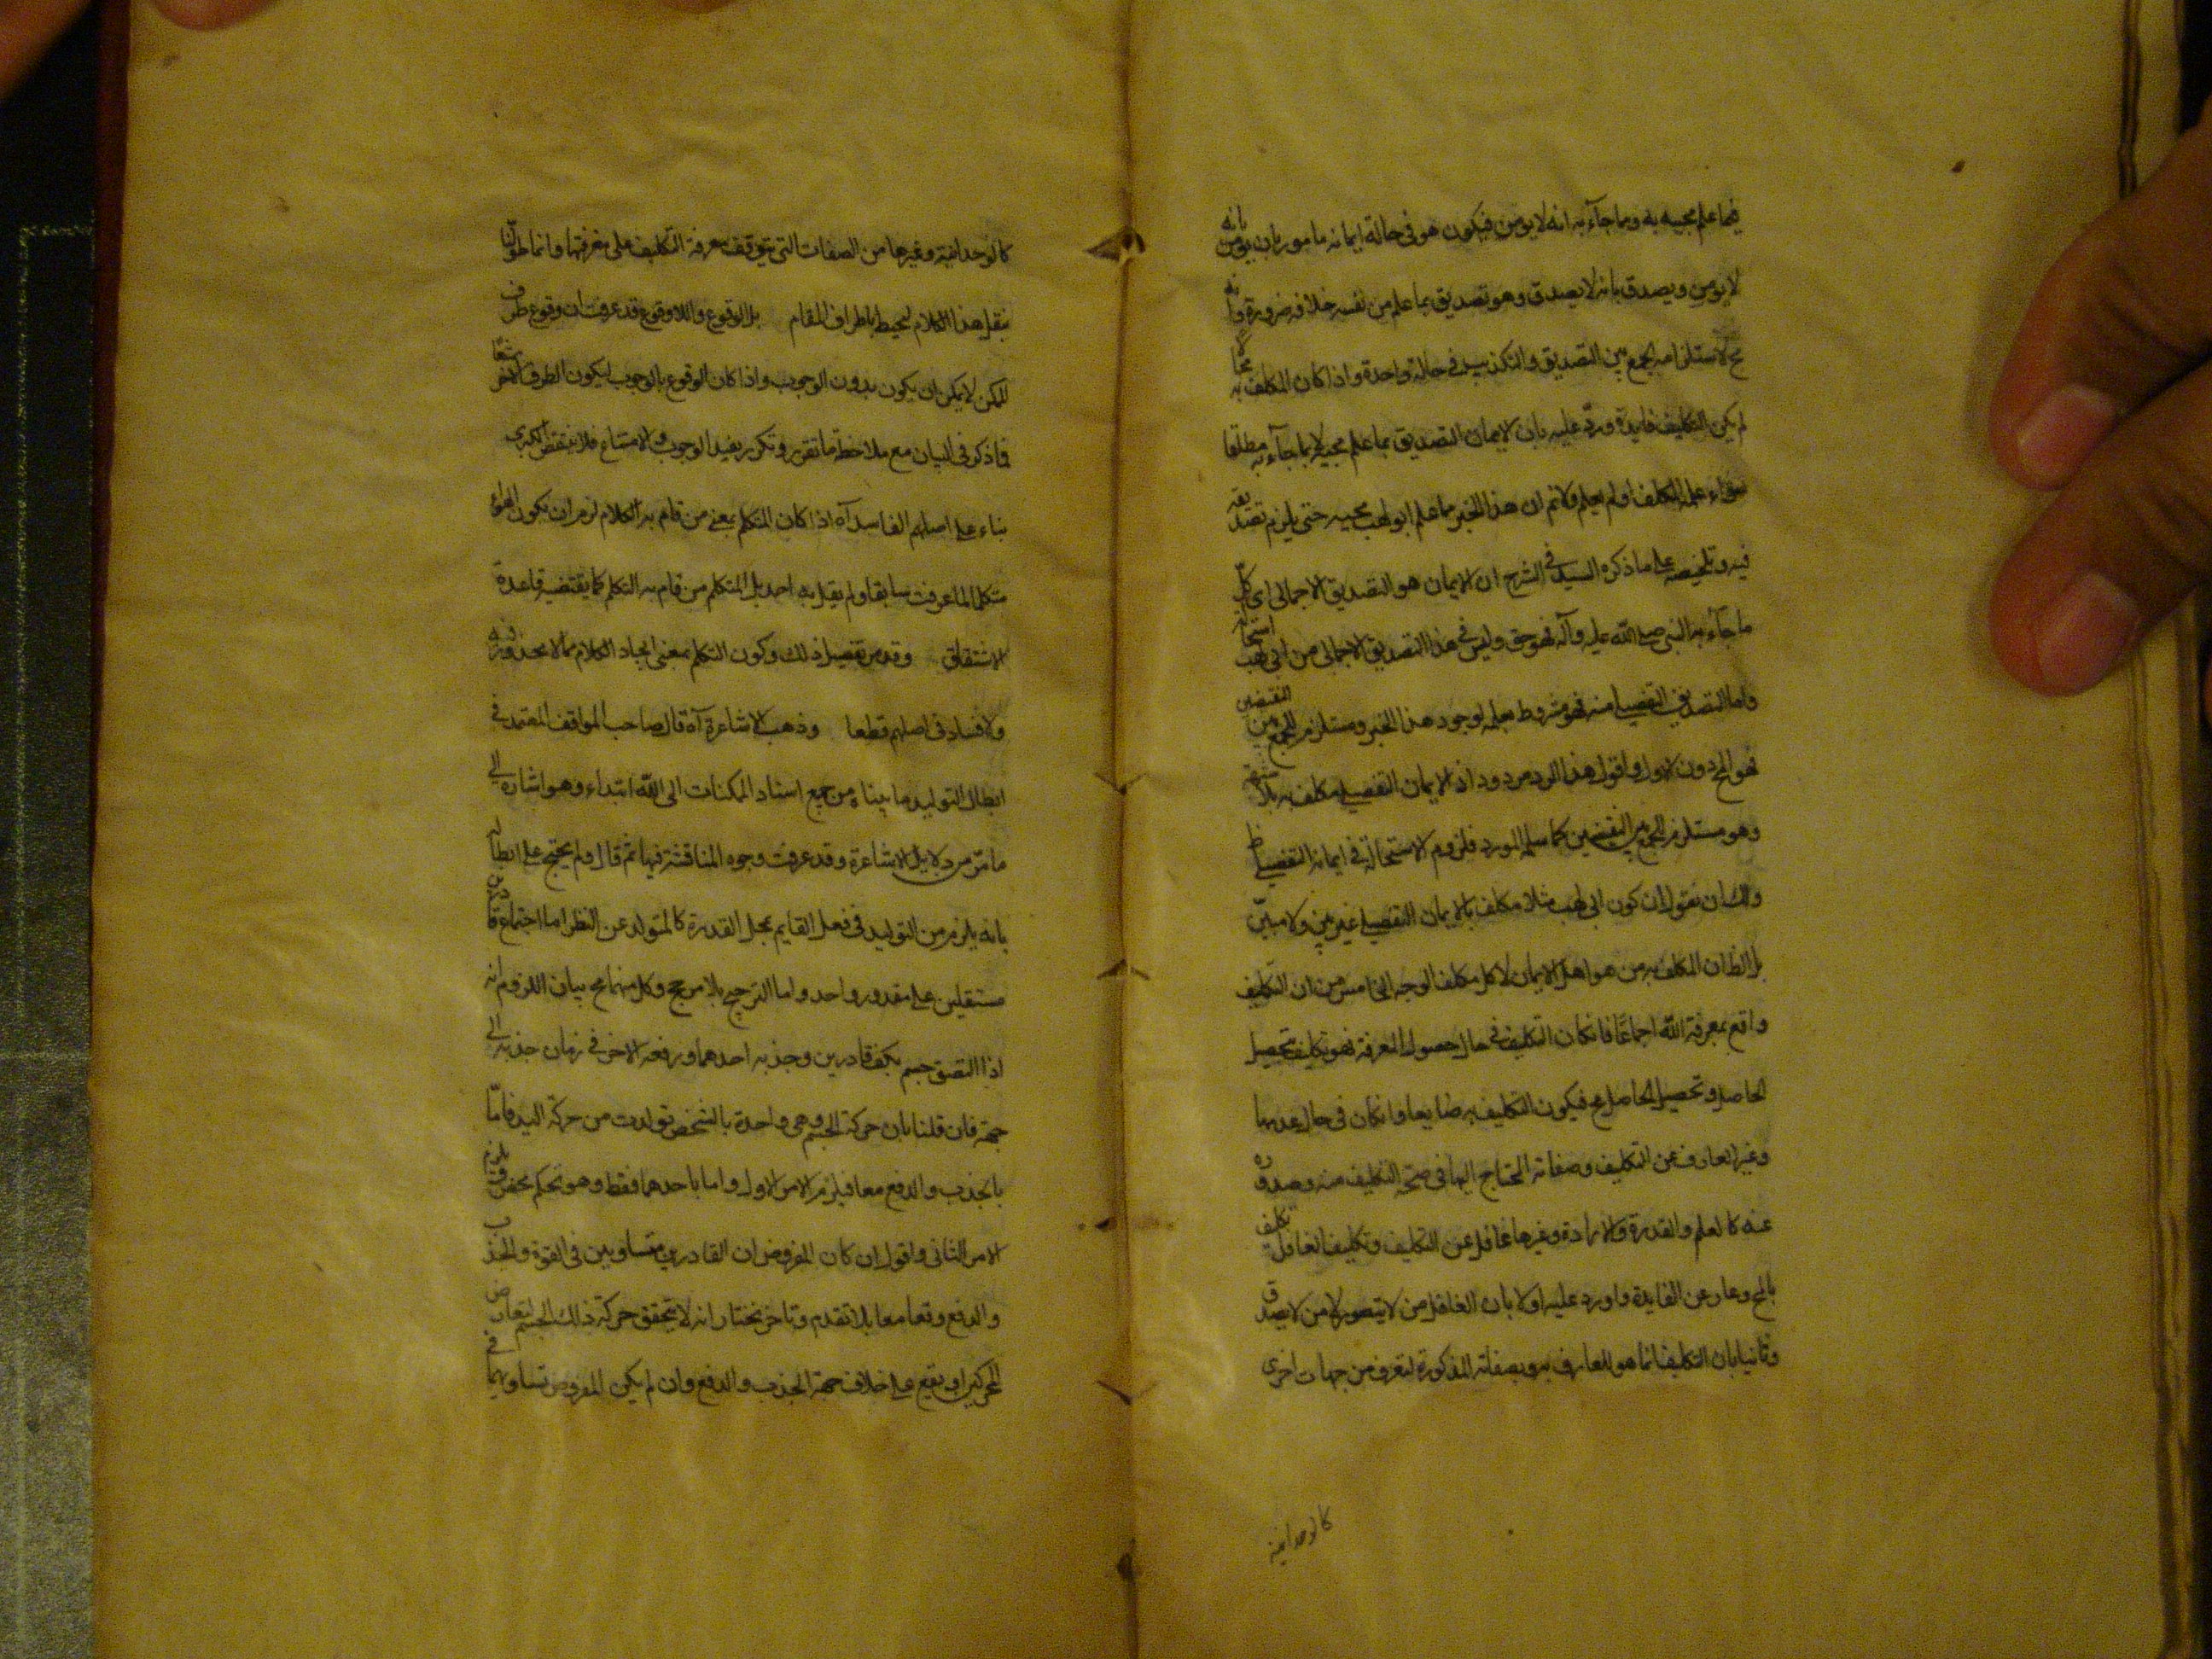 فيما علم مجيبه به ومما جاء به انه لا يومن فيكون هو في حالة ايمانه مامور بان يومن بانه
لا يومن ويصدق بانه لا يصدق وهو تصديق بما علم من نفسه خلافه ضرورة وانه
مح لاستلزامه الجمع بين التصديق والتكذيب في حالة واحدة واذا كان المكلف به محالا
لم يكن التكليف فايدة ورد عليه بان الايمان التصديق بما علم مجيئه لا بما جاء به مطلقا
سواء علمه المكلف او لم يعلم ولا نم ان هذا الخبر مما علم ابو لهب مجيه حتى يلزم تصديقه
فيه وتلخيصه على ما ذكره السيد في الشرح ان الايمان هو التصديق الاجمالي اي كل
ما جاء به النبي صلى الله عليه وآله فهو حق وليس في هذا التصديق الاجمالي من ابي لهب استحالة
واما التصديق التفصيلي منه فهو مشروط بعلمه لوجود هذا الخبر ومستلزم للجمع بين النقيضين
فهو المح دون الاول واقول هذا الرد مردود اذ الايمان التفصيلي مكلف به بلا شبهة
وهو مستلزم للجمع بين النقيضين كما سلمه المورد فلزوم الاستحالة في ايمانه التفصيلي ظ
ولك ان نقول ان كون ابي لهب مثلا مكلف بالايمان التفصيلي غير بين ولا مبين
بل الظ ان المكلف به من هو اهل الايمان لا كل مكلف الوجه الخامس من ان التكليف
واقع بمعرفة الله اجماعا فان كان التكليف في حال حصول المعرفة فهو تكليف بتحصيل
الحاصل وتحصيل الحاصل مح فيكون التكليف به ضايعا وان كان في حال عدمها
وغير العارف عن التكليف وصفاته المحتاج اليها في صحة التكليف منه وصدوره
عنه كالعلم والقدرة والارادة وغيرها غافل عن التكليف وتكليف الغافل تكليف
بالمح وعار عن الفايدة واورد عليه اولا بان الغافل من لا يتصور لا من لا يصدق
وثانيا بان التكليف انما هو للعارف به وبصفاته المذكورة لتعرف من جهات اخرى
كالوحدانية
كالوحدانية وغيرها من الصفات التي يتوقف معرفة التكليف على معرفتها وانما طولنا
بنقل هذا الكلام ليحيط باطراف المقام بل الوقوع واللاوقوع قد عرفت ان وقوع طرف
الممكن لا يمكن ان يكون بدون الوجوب واذا كان الوقوع بالوجوب ليكون الطرف الاخر ممتنعا
فما ذكر في البيان مع ملاحظة ما تقرر وتكرر يفيد الوجوب والامتناع فلا ينتقض الكبرى
بناء على اصلهم الفاسد آه اذا كان المتكلم بمعنى من قام به الكلام لزم ان يكون الهواء
متكلما لما عرفت سابقا ولم يقل به احد بل المتكلم من قام به التكلم كما يقتضيه قاعدة
الاشتقاق وقد مر تفصيل ذلك وكون التكلم بمعنى ايجاد الكلام مما لا محذور فيه
ولا فساد في اصلهم قطعا وذهب الاشاعرة آه قال صاحب المواقف المعتمد في
ابطال التوليد ما بيناه من جميع اسناد الممكنات الى الله ابتداء وهو اشارة الى
ما مر من دلايل الاشاعرة وقد عرفت وجوه المناقشة فيها ثم قال ولم يحتج على ابطاله
بانه يلزم من التوليد في فعل القايم بمحل القدرة كالمتولد عن النظر اما اجتماع قادرين
مستقلين على مقدور واحد واما الترجيح بلا مرجح وكل منهما مح بيان اللزوم انه
اذا التصق جسم بكف قادرين وجذبه احدهما ورفعه الاخر في زمان جذبه الى
جهة فان قلنا بان حركة الجسم وهي واحدة بالشخص تولدت من حركة اليد فاما
بالجذب والدفع معا فيلزم الامر الاول واما باحدهما فقط وهو تحكم محض فيلزم
الامر الثاني واقول ان كان المفروض ان القادرين متساويين في القوة والجذب
والدفع وقعا معا بلا تقدم وتاخر نختار انه لا يتحقق حركة ذلك الجسم لتعارض
المحركين او يقع على خلاف جهة الجذب والدفع وان لم يكن المفروض تساويهما في